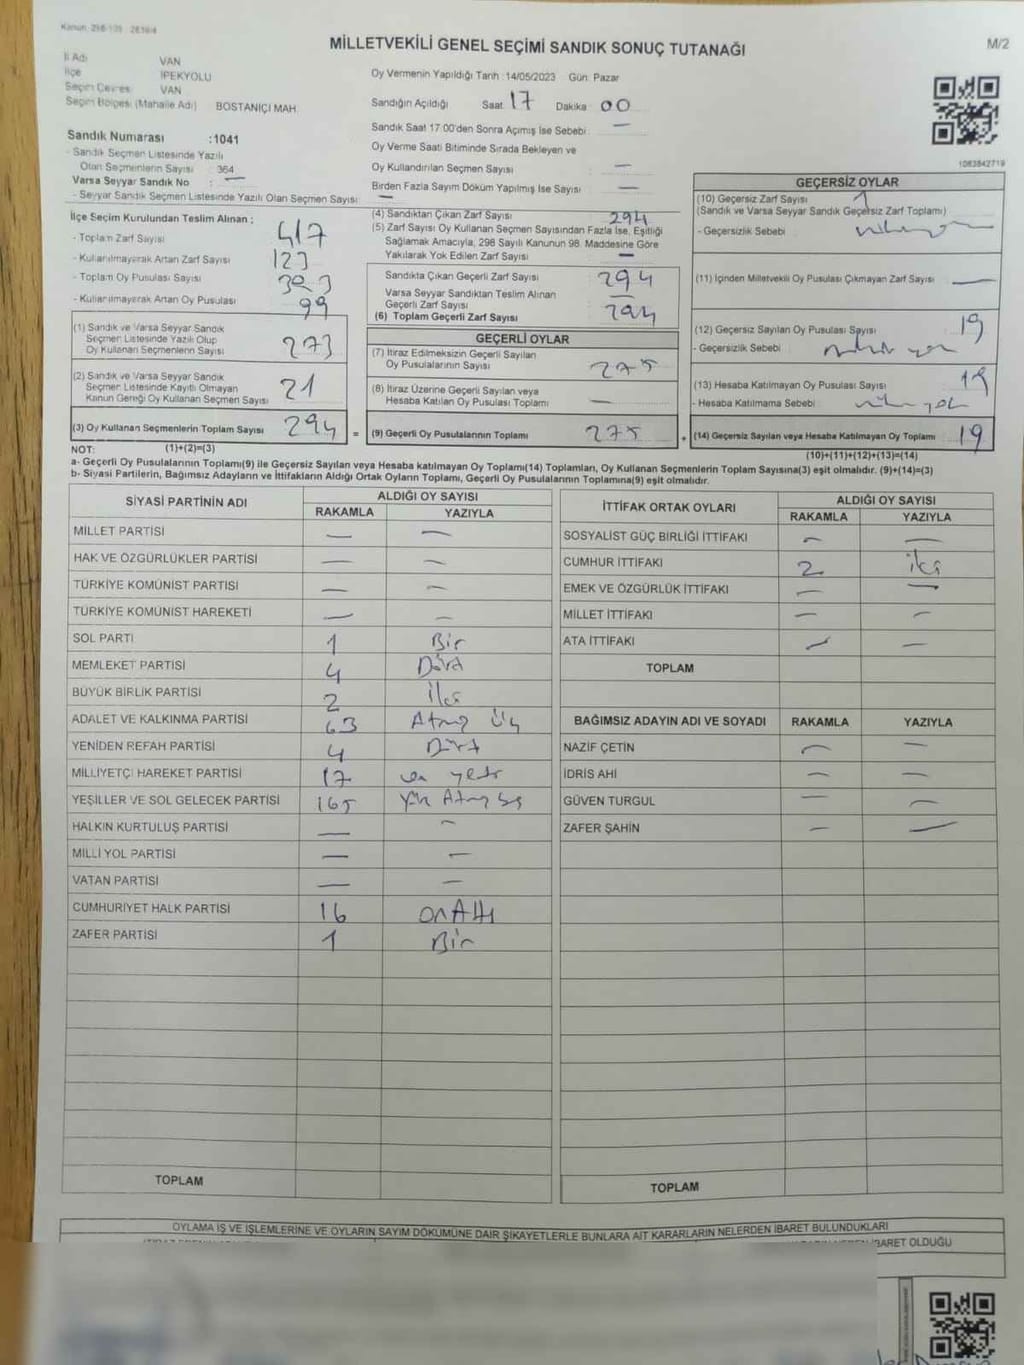 MİLLETVEKİLİ GENEL SEÇİMİ SANDIK SONUÇ TUTANAĞI
M/2
İl Adı VAN
İlçe İPEKYOLU
Seçim Çevresi VAN
Seçim Bölgesi (Mahalle Adı) BOSTANİÇİ MAH.
Sandık Numarası :1041
- Sandık Seçmen Listesinde Yazılı
Olan Seçmenlerin Sayısı : 364
Varsa Seyyar Sandık No : —
- Seyyar Sandık Seçmen Listesinde Yazılı Olan Seçmen Sayısı : —
Oy Vermenin Yapıldığı Tarih :14/05/2023 Gün: Pazar
Sandığın Açıldığı Saat 17 Dakika 00
Sandık Saat 17:00'den Sonra Açılmış İse Sebebi : —
Oy Verme Saati Bitiminde Sırada Bekleyen ve
Oy Kullandırılan Seçmen Sayısı : —
Birden Fazla Sayım Döküm Yapılmış İse Sayısı : —
1083842719
İlçe Seçim Kurulundan Teslim Alınan ;
- Toplam Zarf Sayısı : 417
- Kullanılmayarak Artan Zarf Sayısı : 123
- Toplam Oy Pusulası Sayısı
- Kullanılmayarak Artan Oy Pusulası : 99
(1) Sandık ve Varsa Seyyar Sandık
Seçmen Listesinde Yazılı Olup
Oy Kullanan Seçmenlerin Sayısı : 273
(2) Sandık ve Varsa Seyyar Sandık
Seçmen Listesinde Kayıtlı Olmayan
Kanun Gereği Oy Kullanan Seçmen Sayısı : 21
(3) Oy Kullanan Seçmenlerin Toplam Sayısı : 294
(1)+(2)=(3)
(4) Sandıktan Çıkan Zarf Sayısı : 294
(5) Zarf Sayısı Oy Kullanan Seçmen Sayısından Fazla İse, Eşitliği
Sağlamak Amacıyla, 298 Sayılı Kanunun 98. Maddesine Göre
Yakılarak Yok Edilen Zarf Sayısı : —
Sandıkta Çıkan Geçerli Zarf Sayısı : 294
Varsa Seyyar Sandıktan Teslim Alınan
Geçerli Zarf Sayısı : —
(6) Toplam Geçerli Zarf Sayısı : 294
GEÇERLİ OYLAR
(7) İtiraz Edilmeksizin Geçerli Sayılan
Oy Pusulalarının Sayısı : 275
(8) İtiraz Üzerine Geçerli Sayılan veya
Hesaba Katılan Oy Pusulası Toplamı : —
= (9) Geçerli Oy Pusulalarının Toplamı : 275
GEÇERSİZ OYLAR
(10) Geçersiz Zarf Sayısı
(Sandık ve Varsa Seyyar Sandık Geçersiz Zarf Toplamı)
- Geçersizlik Sebebi :
(11) İçinden Milletvekili Oy Pusulası Çıkmayan Zarf Sayısı : —
(12) Geçersiz Sayılan Oy Pusulası Sayısı : 19
- Geçersizlik Sebebi :
(13) Hesaba Katılmayan Oy Pusulası Sayısı : 19
- Hesaba Katılmama Sebebi :
+ (14) Geçersiz Sayılan veya Hesaba Katılmayan Oy Toplamı : 19
(10)+(11)+(12)+(13)=(14)
NOT:
a- Geçerli Oy Pusulalarının Toplamı(9) ile Geçersiz Sayılan veya Hesaba katılmayan Oy Toplamı(14) Toplamları, Oy Kullanan Seçmenlerin Toplam Sayısına(3) eşit olmalıdır. (9)+(14)=(3)
b- Siyasi Partilerin, Bağımsız Adayların ve İttifakların Aldığı Ortak Oyların Toplamı, Geçerli Oy Pusulalarının Toplamına(9) eşit olmalıdır.
SİYASİ PARTİNİN ADI ALDIĞI OY SAYISI
RAKAMLA YAZIYLA
MİLLET PARTİSİ — —
HAK VE ÖZGÜRLÜKLER PARTİSİ — —
TÜRKİYE KOMÜNİST PARTİSİ — —
TÜRKİYE KOMÜNİST HAREKETİ — —
SOL PARTİ 1 Bir
MEMLEKET PARTİSİ 4 Dört
BÜYÜK BİRLİK PARTİSİ 2 İki
ADALET VE KALKINMA PARTİSİ 63 Atmış Üç
YENİDEN REFAH PARTİSİ 4 Dört
MİLLİYETÇİ HAREKET PARTİSİ 17 on yedi
YEŞİLLER VE SOL GELECEK PARTİSİ 165 Yüz Atmış beş
HALKIN KURTULUŞ PARTİSİ — —
MİLLİ YOL PARTİSİ — —
VATAN PARTİSİ — —
CUMHURİYET HALK PARTİSİ 16 onAltı
ZAFER PARTİSİ 1 Bir
TOPLAM
İTTİFAK ORTAK OYLARI ALDIĞI OY SAYISI
RAKAMLA YAZIYLA
SOSYALİST GÜÇ BİRLİĞİ İTTİFAKI — —
CUMHUR İTTİFAKI 2 iki
EMEK VE ÖZGÜRLÜK İTTİFAKI — —
MİLLET İTTİFAKI — —
ATA İTTİFAKI — —
TOPLAM
BAĞIMSIZ ADAYIN ADI VE SOYADI RAKAMLA YAZIYLA
NAZİF ÇETİN — —
İDRİS AHİ — —
GÜVEN TURGUL — —
ZAFER ŞAHİN — —
TOPLAM
OYLAMA İŞ VE İŞLEMLERİNE VE OYLARIN SAYIM DÖKÜMÜNE DAİR ŞİKAYETLERLE BUNLARA AİT KARARLARIN NELERDEN İBARET BULUNDUKLARI
İBARET OLDUĞU